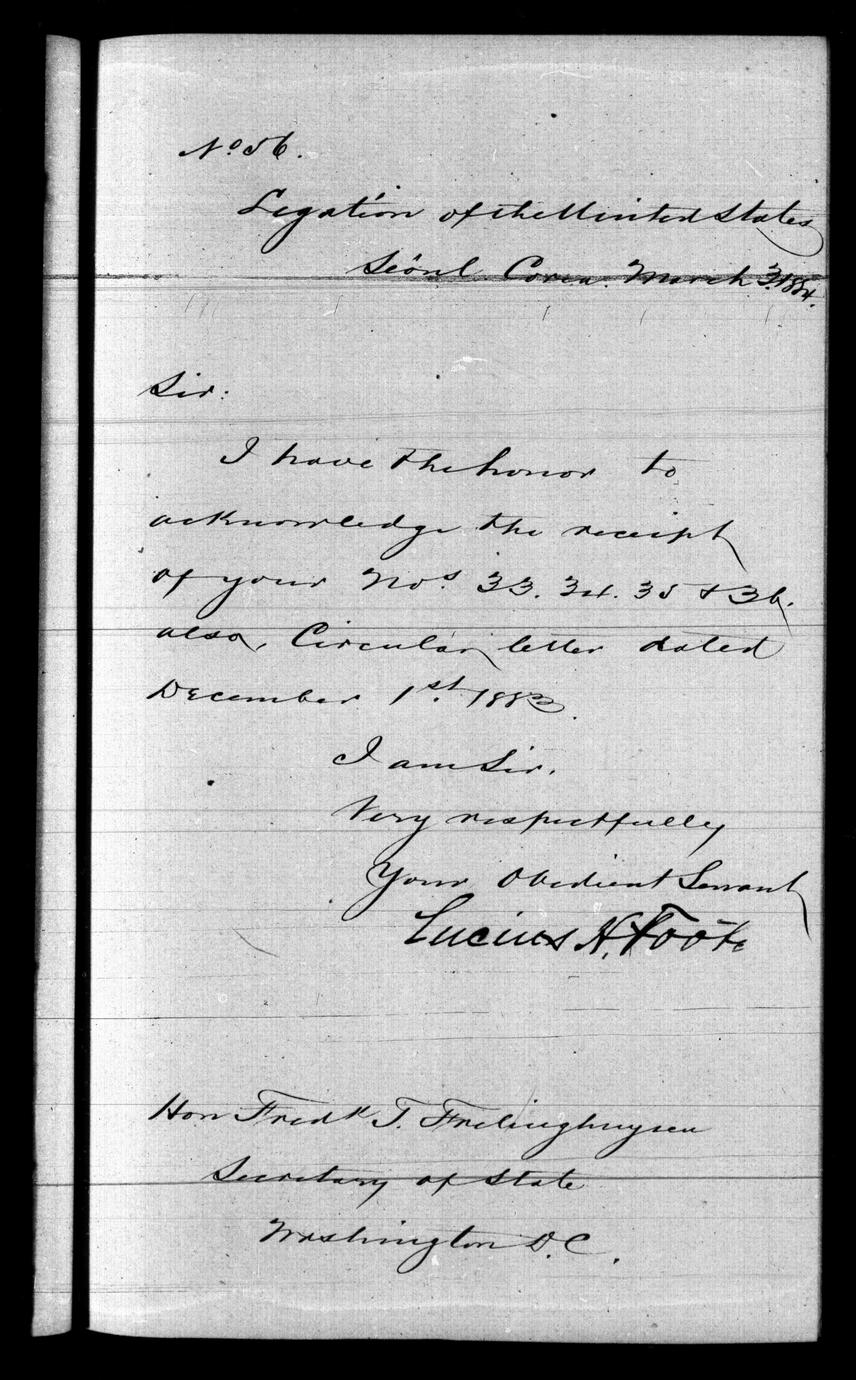 No 56.
Legation of the United States
Séoul Corea. March 3. 1884.
Sir:
I have the honor to
acknowledge the receipt
of your Nos. 33. 34. 35 & 36.
also, Circular letter dated
December 1st. 1883.
I am Sir,
Very respectfully
Your Obedient Servant
Lucius H. Foote
Hon Fredk T. Frelinghuysen
Secretary of State
Washington D.C.